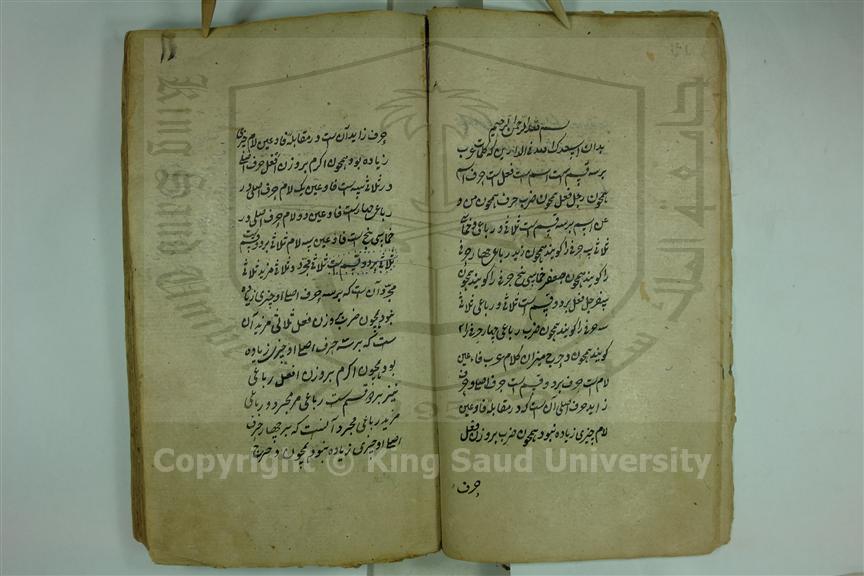 بسم الله الرحمن الرحیم
بدان اسعدک الله فی الدارین که کلمات عرب
برسه قسم است اسم است فعل است حرف اسم
همچون رجل فعل همچون ضرب حرف همچون من و
عن اسم برسه قسم است ثلاثی و رباعی و خماسی
ثلاثی سه حرفی را کویند همچون زید رباعی چهار حرفی
را کویند همچون جعفر خماسی پنج حرفی را کویند همچون
سفرجل فعل بردو قسم است ثلاثی و رباعی ثلاثی
سه حرفی را کویند همچون ضرب رباعی چهار حرفی را
کویند همچون دحرج میزان کلام عرب فا عین
لام است حرف بردو قسم است حرف اصلی و حرف
زاید حرف اصلی آن است که در مقابله فا و عین
لام چیزی زیاده نبود همچون ضرب بروزن فعل
حرف
حرف زاید آن است در مقابله فا و عین لام چیزی
زیاده بود همچون اکرم بروزن افعل حرف اصلی
در ثلاثی سه است فا و عین یک لام حرف اصلی در
رباعی چهار است فا و عین دو لام حرف اصلی در
خماسی پنج است فا و عین سه لام ثلاثی بردو قسم است
ثلاثی بردو قسم است ثلاثی مجرد و ثلاثی مزید ثلاثی
مجرد آن است که برسه حرف اصلی او چیزی زیاده
نبود همچون ضرب بوزن فعل ثلاثی مزید آن
است که برسه حرف اصلی او چیزی زیاده
بود همچون اکرم بروزن افعل رباعی
نیز بردو قسم است رباعی مجرد و رباعی
مزید رباعی مجرد آنست که بر چهار حرف
اصلی او چیزی زیاده نبود همچون دحرج
جامعة الملك سعود
King Saud University
Copyright © King Saud University